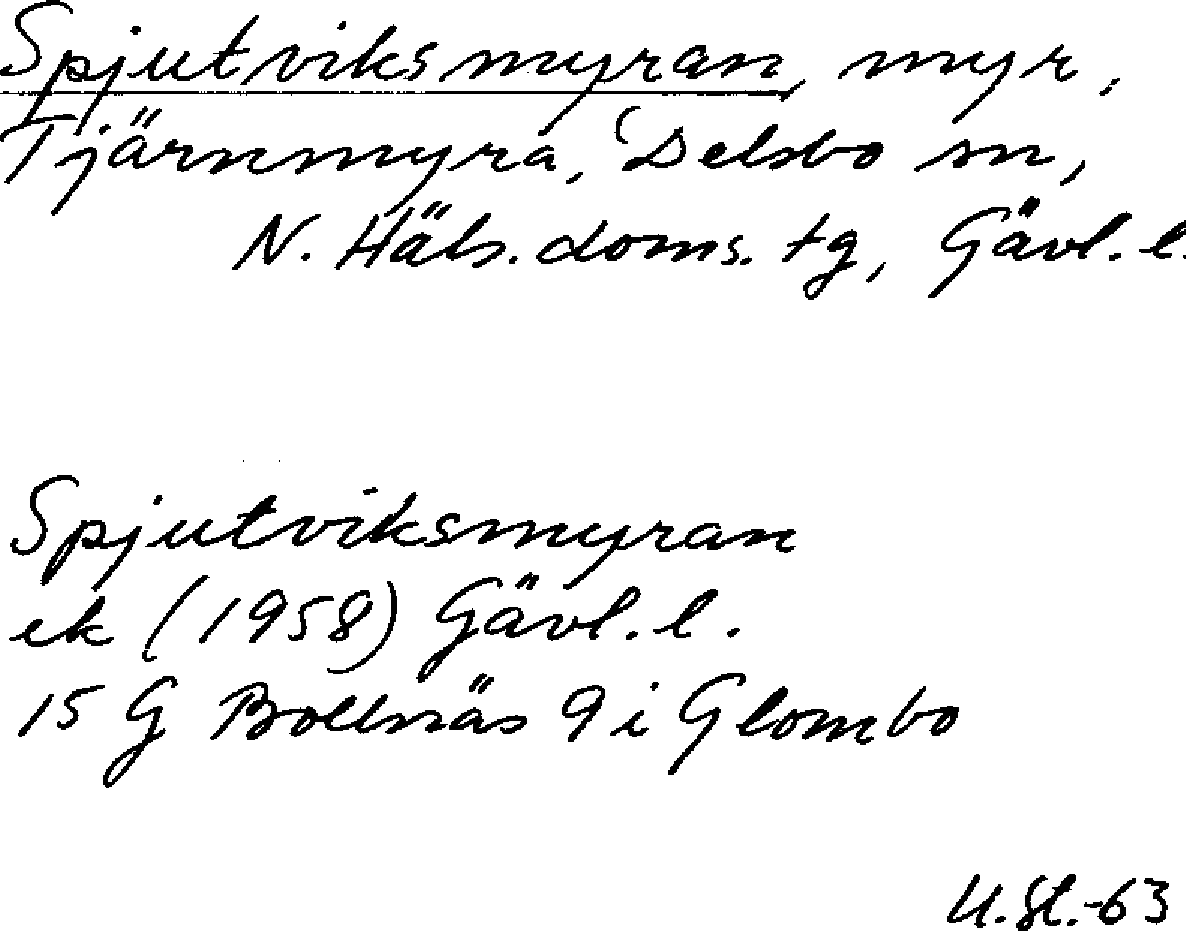 Spjutviksmyran, myr,
Tjärnmyra, Delsbo sn,
N. Häls. doms. tg, Gävl. l.
Spjutviksmyran
ek (1958) Gävl. l.
15 G Bollnäs 9 i Glombo
U. St. -63